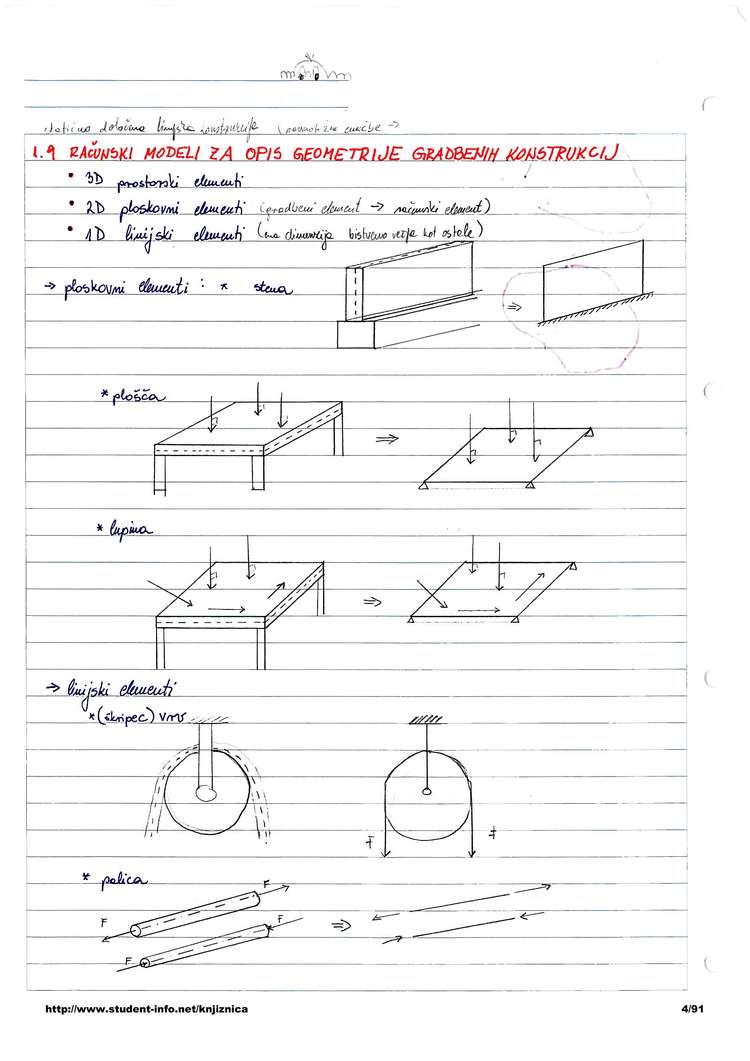 statično določene linijske konstrukcije (ravnotežne enačbe →
1.9 RAČUNSKI MODELI ZA OPIS GEOMETRIJE GRADBENIH KONSTRUKCIJ
• 3D prostorski elementi
• 2D ploskovni elementi (gradbeni element → računski element)
• 1D linijski elementi (ena dimenzija bistveno večja kot ostale)
→ ploskovni elementi : * stena
⇒
* plošča
⇒
* lupina
⇒
→ linijski elementi
* (škripec) vrv
F F
* palica
F
F F
⇒
F
http://www.student-info.net/knjiznica 4/91